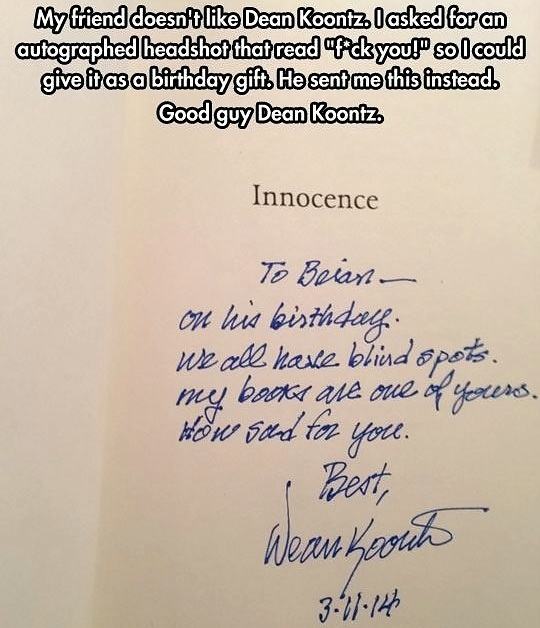 My friend doesn't like Dean Koontz. I asked for an
autographed headshot that read "f*ck you!" so I could
give it as a birthday gift. He sent me this instead.
Good guy Dean Koontz.
Innocence
To Brian —
on his birthday.
We all have blind spots.
my books are one of yours.
How sad for you.
Best,
Dean Koontz
3·11·14